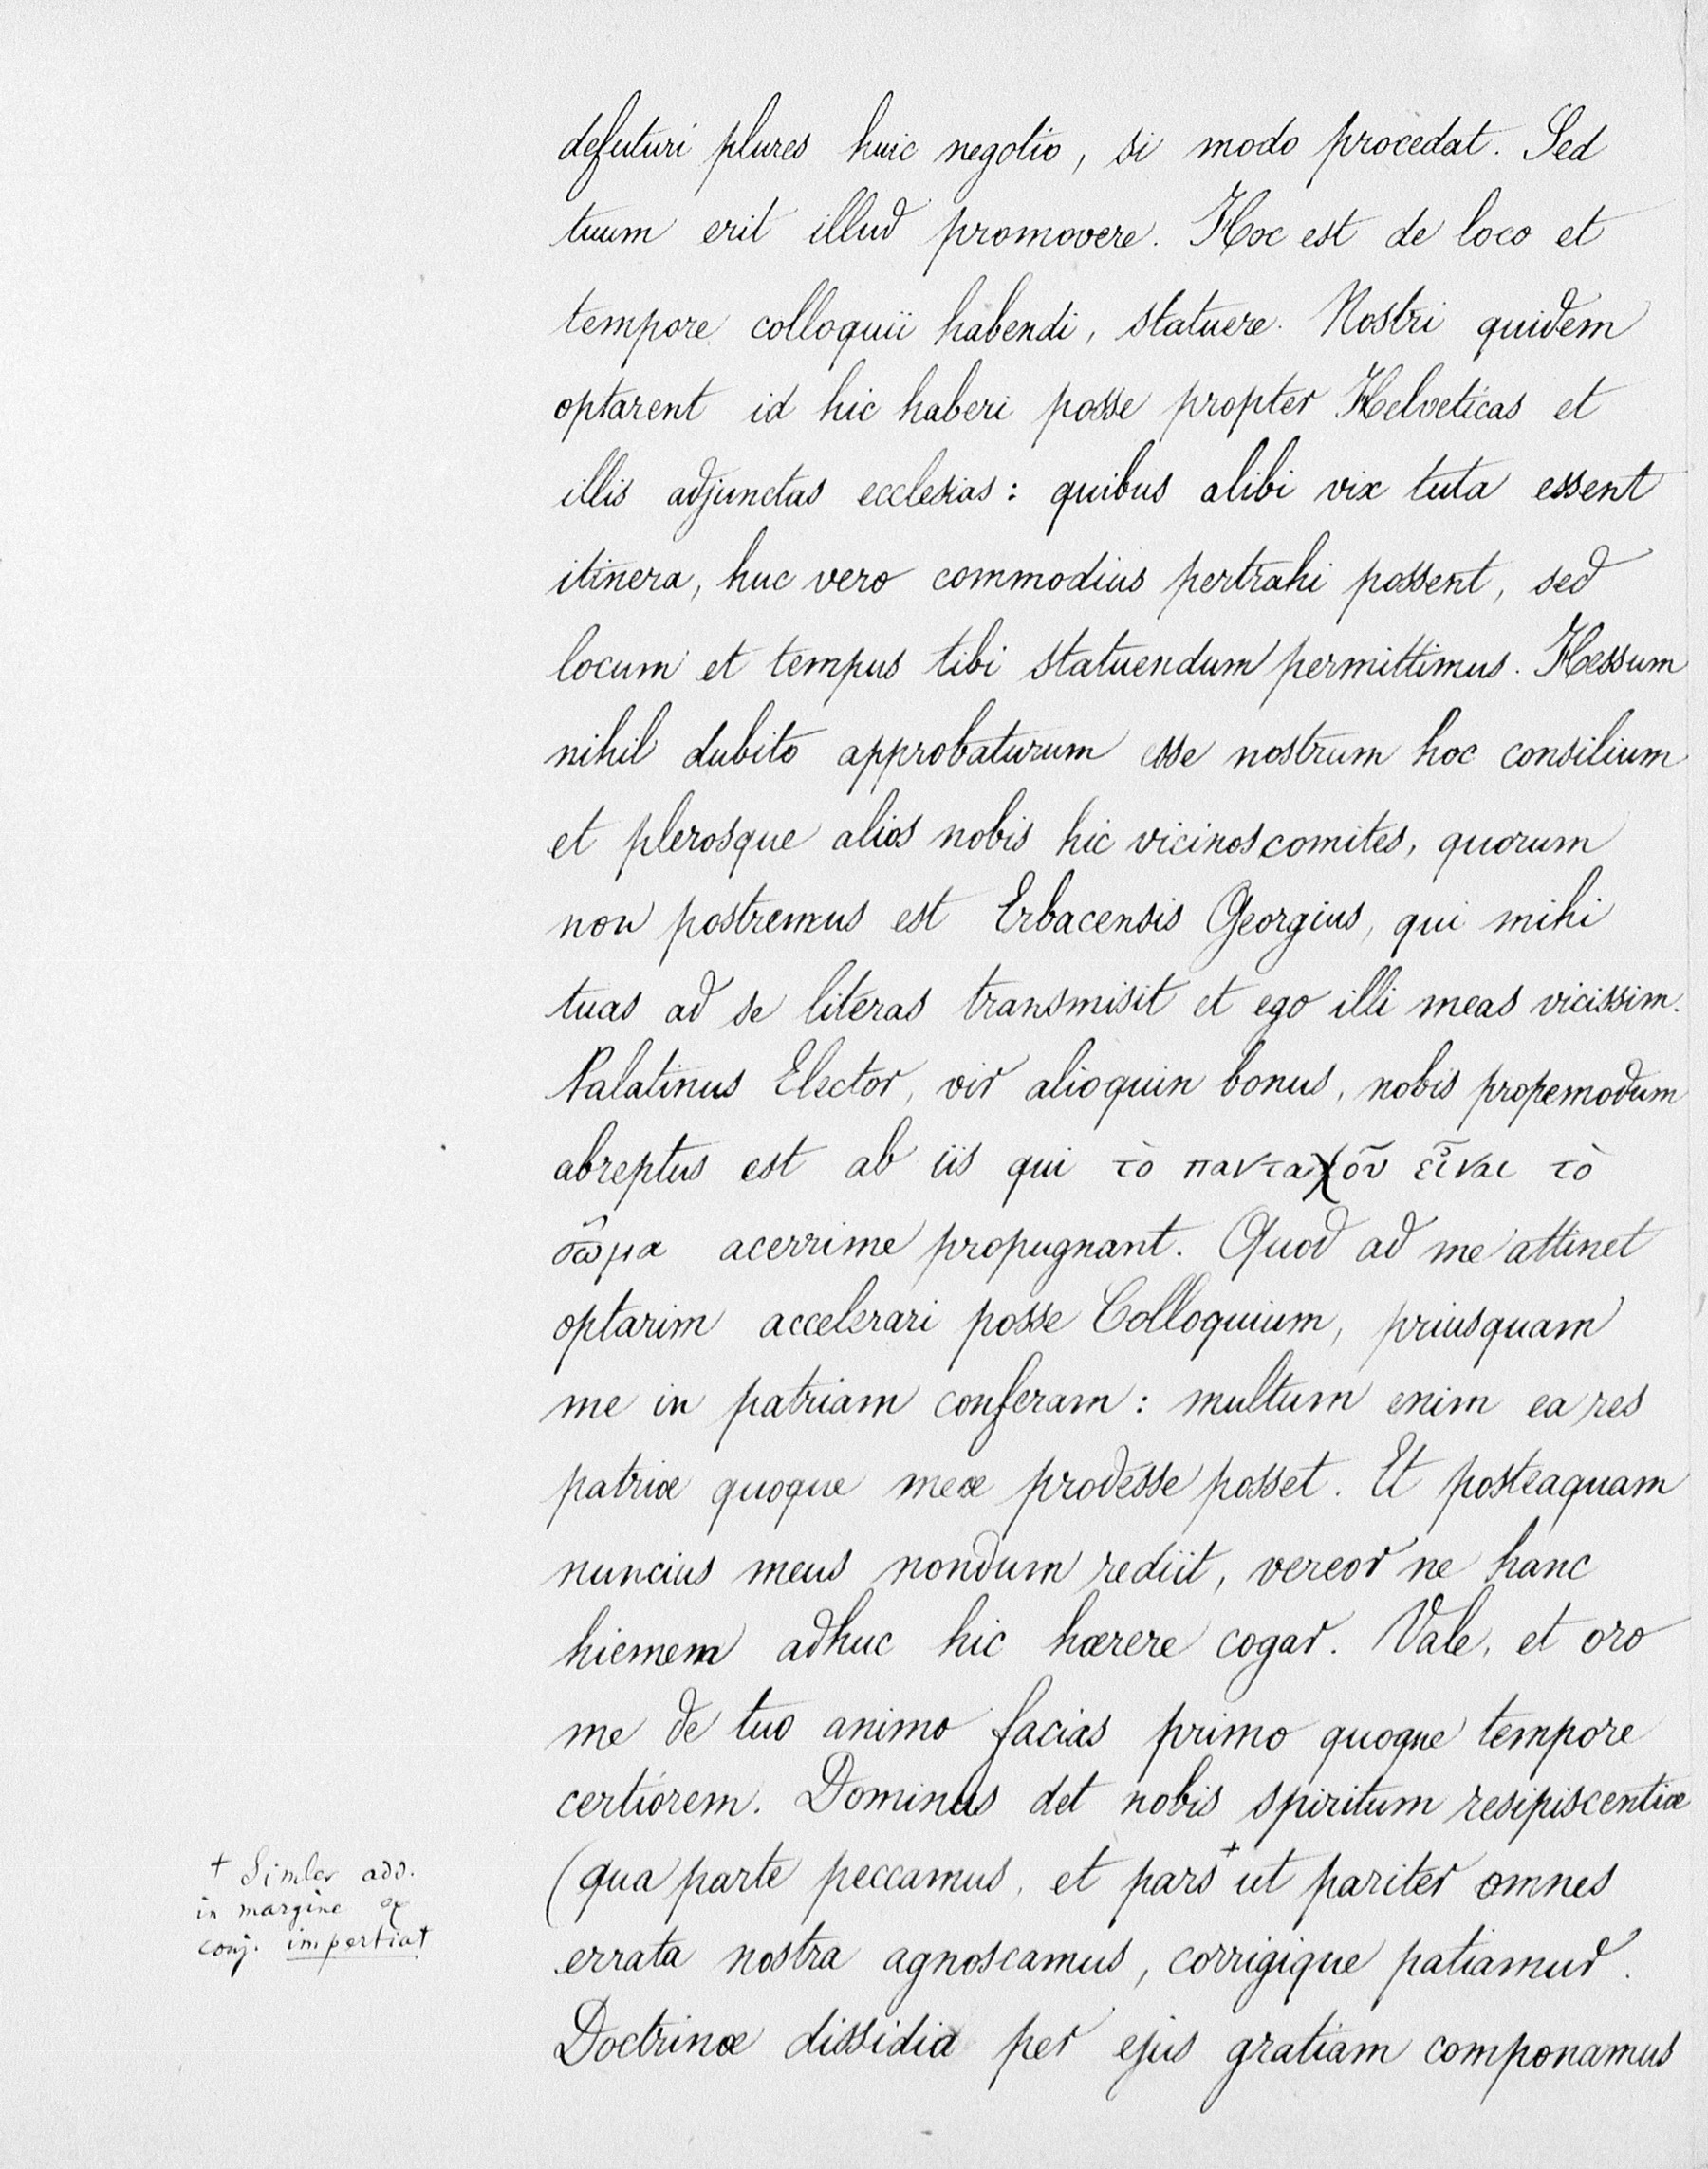 defuturi plures huic negotio, si modo procedat. Sed
tuum erit illud promovere. Hoc est de loco et
tempore colloquii habendi, statuere. Nostri quidem
optarent id hic haberi posse propter Helveticas et
illis adjunctas ecclesias: quibus alibi vix tuta essent
itinera, huc vero commodius pertrahi possent, sed
locum et tempus tibi statuendum permittimus. Hessum
nihil dubito approbaturum esse nostrum hoc consilium
et plerosque alios nobis hic vicinos comites, quorum
non postremus est Erbacensis Georgius, qui mihi
tuas ad se literas transmisit et ego illi meas vicissim.
Palatinus Elector, vir alioquin bonus, nobis propemodum
abreptus est ab iis qui τὸ πανταχοῦ εἶναι τὸ
σῶμα acerrime propugnant. Quod ad me attinet
optarim accelerari posse Colloquium, priusquam
me in patriam conferam: multum enim ea res
patriæ quoque meæ prodesse posset. Et posteaquam
nuncius meus nondum rediit, vereor ne hanc
hiemem adhuc hic hærere cogar. Vale, et oro
me de tuo animo facias primo quoque tempore
certiorem. Dominus det nobis spiritum resipiscentiæ
(qua parte peccamus, et pars + ut pariter omnes
errata nostra agnoscamus, corrigique patiamur.
Doctrinæ dissidia per ejus gratiam componamus
+ Simler add.
in margine ex
conj. impertiat